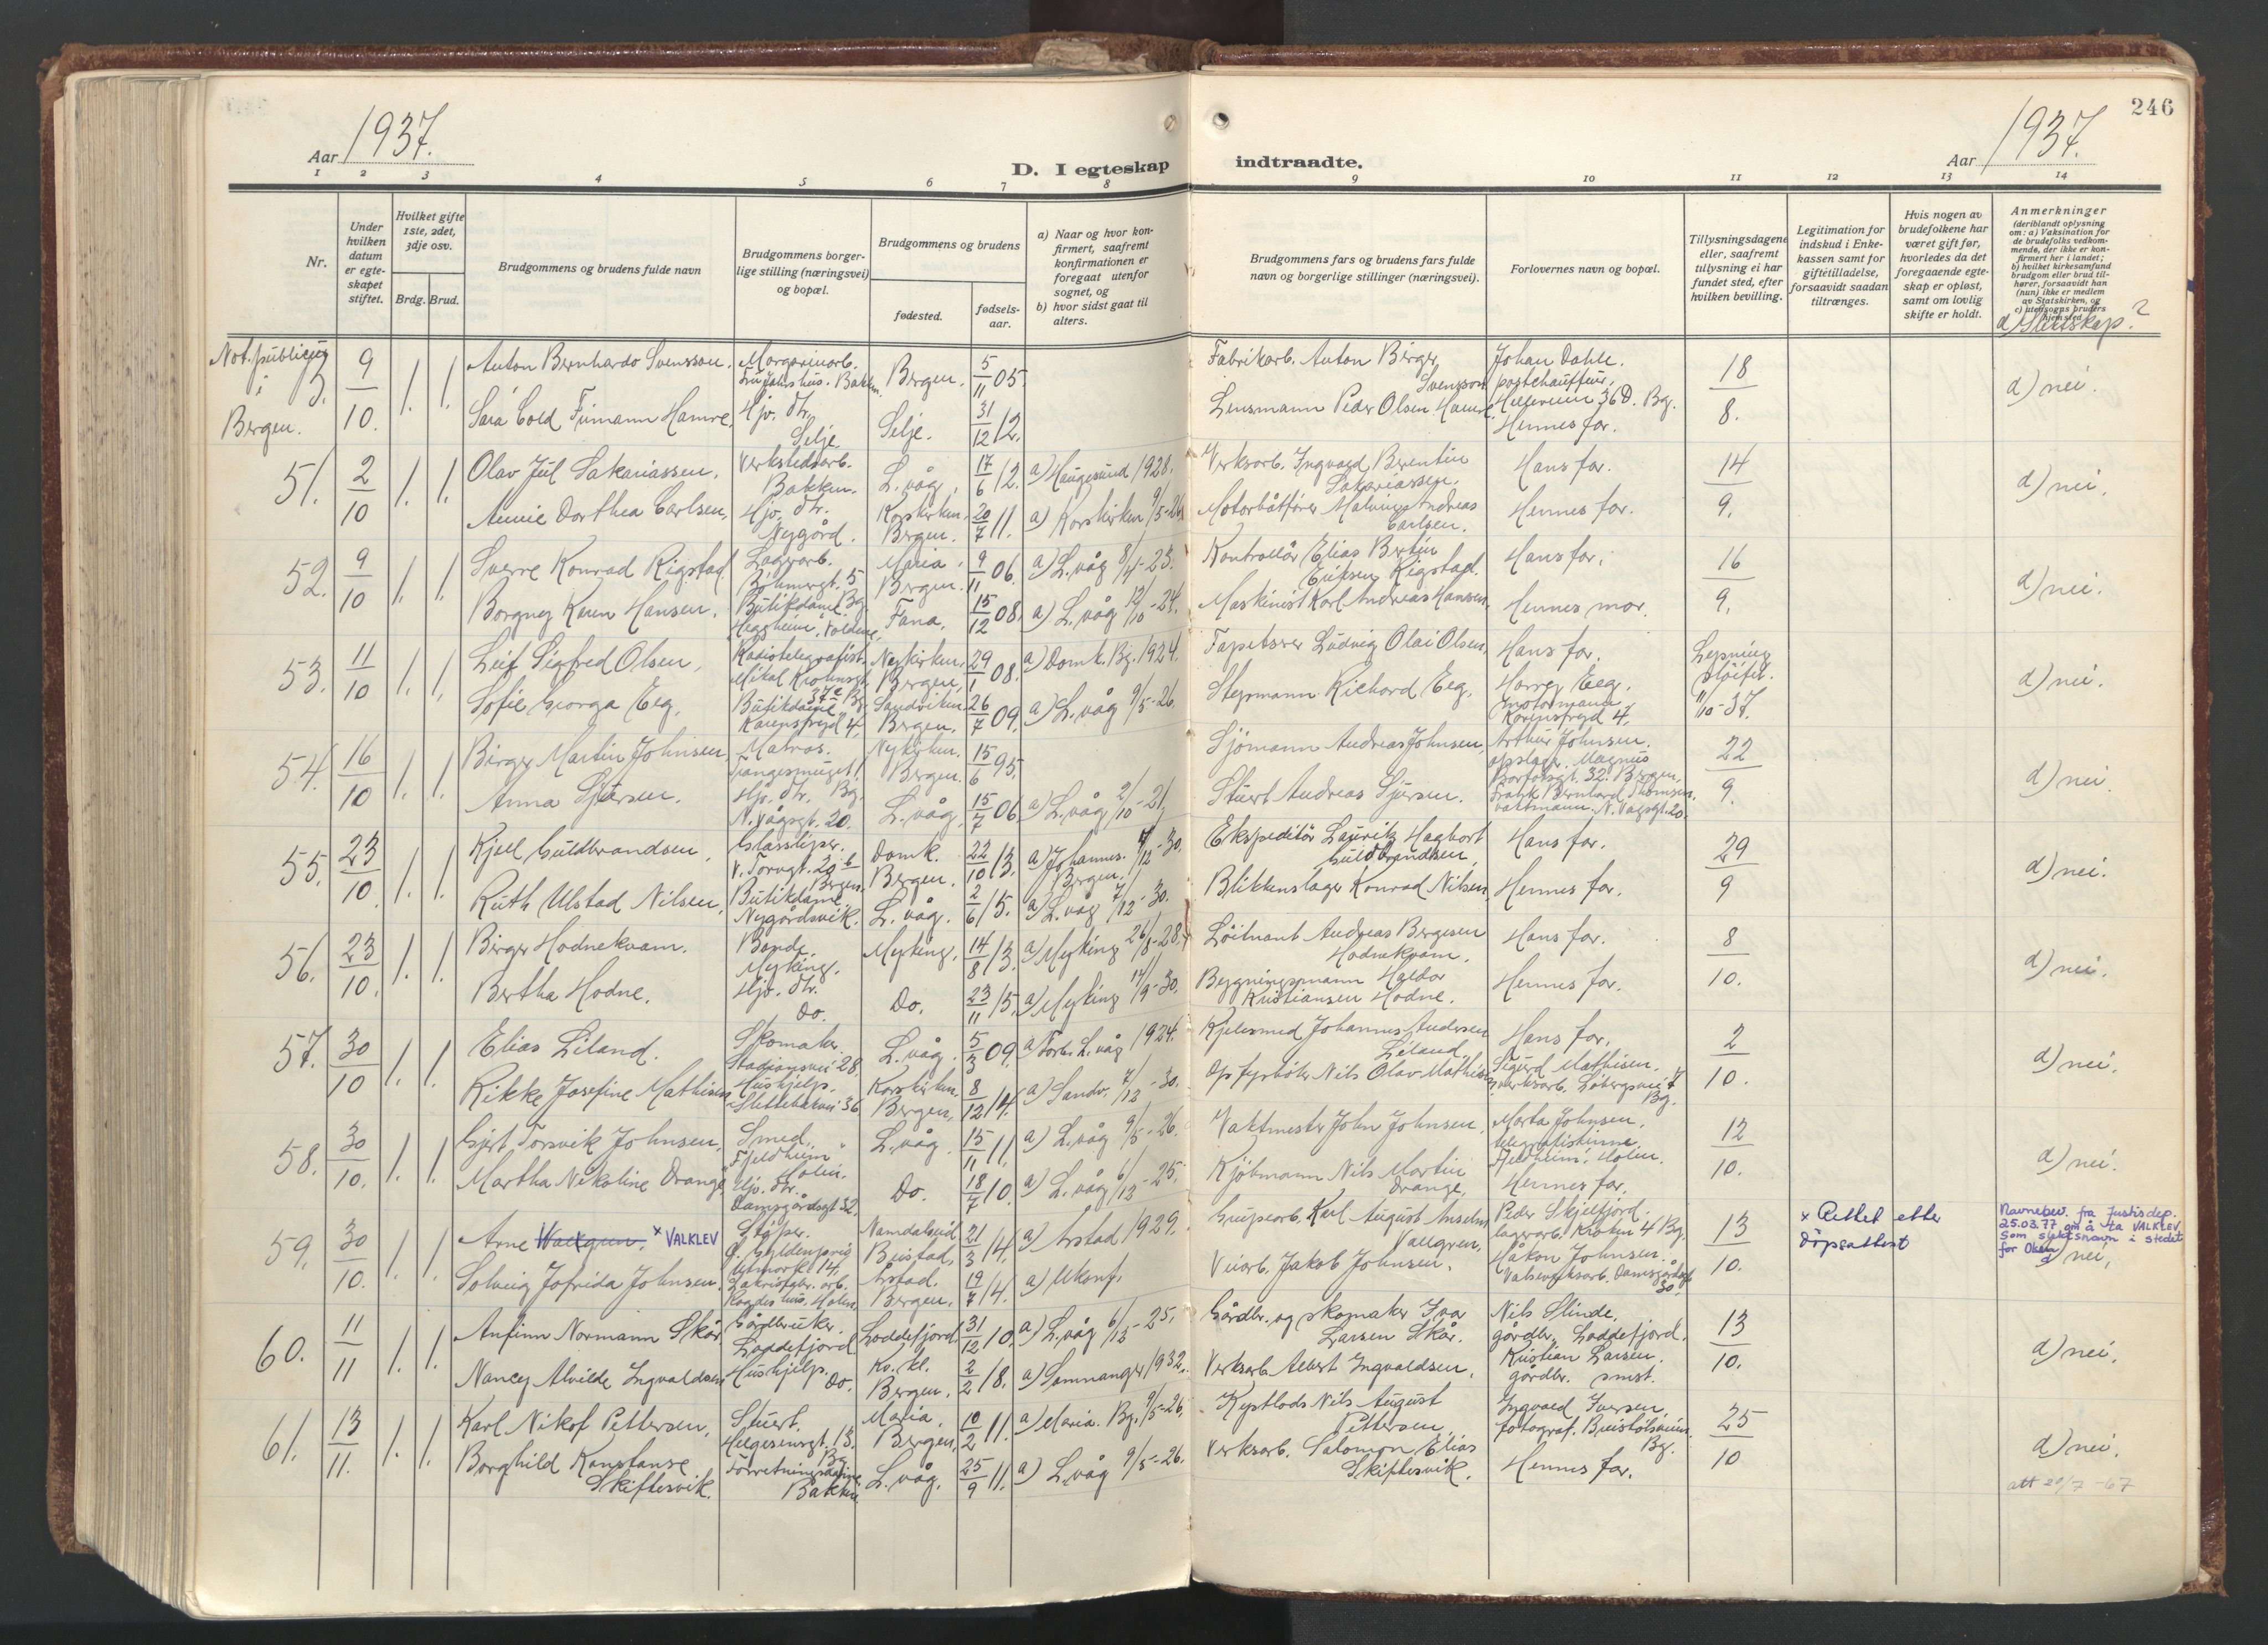 246
Aar 1937.
D. I egteskap
indtraadte.
Aar 1937.
1 2 3 4 5 6 7 8 9 10 11 12 13 14
Nr.
Under hvilken datum er egteskapet stiftet.
Hvilket gifte 1ste, 2det, 3dje osv.
Brdg. Brud.
Brudgommens og brudens fulde navn
Brudgommens borgerlige stilling (næringsvei) og bopæl.
Brudgommens og brudens
fødested.
fødselsaar.
a) Naar og hvor konfirmert, saafremt konfirmationen er foregaat utenfor sognet, og
b) hvor sidst gaat til alters.
Brudgommens fars og brudens fars fulde navn og borgerlige stillinger (næringsvei).
Forlovernes navn og bopæl.
Tillysningsdagene eller, saafremt tillysning ei har fundet sted, efter hvilken bevilling.
Legitimation for indskud i Enkekassen samt for giftetilladelse, forsaavidt saadan tiltrænges.
Hvis nogen av brudefolkene har været gift før, hvorledes da det foregaaende egteskap er opløst, samt om lovlig skifte er holdt.
Anmerkninger
(deriblandt oplysning om: a) Vaksination for de brudefolks vedkommende, der ikke er konfirmert her i landet; b) hvilket kirkesamfund brudgom eller brud tilhører, forsaavidt han (hun) ikke er medlem av Statskirken, og c) utensogns bruders hjemsted.)
d) Slektskap?
Not. publicus i Bergen. 3. 9/10 1. 1.
Anton Bernhardo Svensson. Margarinarb. Bakken. Bergen. 5/11 05.
Fabrikarb. Anton Birger Svensson
Johan Dahle. postchauffeur, Helleveien 36 D. Bg.
18/8.
d) nei.
Sara Cold Fimann Hamre. Hjv. dtr. Selje Selje. 31/12 12.
Lensmann Peder Olsen Hamre. Hennes far.
51. 2/10 1. 1.
Olav Jul Sakariassen. Verkstedsarb. Bakken. L.våg. 17/6 12. a) Haugesund 1928.
Verksarb. Ingvald Berentin Sakariassen. Hans far. 14/9. d) nei.
Annie Dorthea Carlsen, Hjv. dtr. Nygård. Korskirken, Bergen. 20/7 11. a) Korskirken 9/5-26.
Motorbåtfører Malvin Andreas Carlsen. Hennes far.
52. 9/10 1. 1.
Sverre Konrad Rigstad. Lagerarb. Böhmergt. 5 Bg. Maria. Bergen. 9/11 06. a) L.våg 8/4-23.
Kontrollør Elias Bertin Eriksen Rigstad. Hans far. 16/9. d) nei.
Borgny Karen Hansen. Butikdame. Fana. 15/12 08. a) L.våg 12/10-24.
Maskinist Karl Andreas Hansen. Hennes mor.
53. 11/10 1. 1.
Leif Sigfred Olsen, Radiotelegrafist. Mikal Krohnsgt. 37e Bg. Nykirken, Bergen, 29/1 08. a) Domk. Bg. 1924.
Tapetserer Ludvig Olai Olsen, Hans far. Lysning sløifet. 11/10-37. d) nei.
Sofie Georga Eeg, Butikdame Karensfryd 4, Sandviken Bergen. 26/7 09. a) L.våg 9/5-26.
Styrmann Richard Eeg. Harry Eeg. motormann Karensfryd 4.
54. 16/10 1. 1.
Birger Martin Johnsen, Matros. Trangesmuget 1 Bg. Nykirken. Bergen. 15/6 95.
Sjömann Andreas Johnsen, Arthur Johnsen. Magnus Barfotsgt. 32. Bergen. 22/9. d) nei.
Anna Sjursen. Hjv. dtr. N. Vågsgt. 20. L.våg. 15/7 06. a) L.våg 2/10-21.
Stuert Andreas Sjursen. Frank Bernhard Thomsen, vaktmann. N. Vågsgt. 20.
55. 23/10. 1. 1.
Kjell Guldbrandsen, Glassliper. V. Torvgt. 20 b Bergen. Domk. Bergen. 22/10 13. a) Johannes. Bergen. 7/12-30.
Ekspeditör Lauritz Hagbart Guldbrandsen, Hans far. 29/9 d) nei.
Ruth Ulstad Nilsen, Butikdame. Nygårdsvik. L.våg. 2/6 15. a) L.våg 7/12-30.
Blikkenslager Konrad Nilsen, Hennes far.
56. 23/10. 1. 1.
Birger Hodnekvam. Bonde. Myking. Myking. 14/8 13. a) Myking 26/8-28.
Löitnant Andreas Bergesen Hodnekvam. Hans far. 8/10. d) nei.
Bertha Hodne. Hjv. dtr. Do. Do. 23/11 15. a) Myking 14/9-30.
Bygningsmann Haldor Kristiansen Hodne. Hennes far.
57. 30/10 1. 1.
Elias Liland. Skomaker. Stadionsvei 28. L.våg. 5/3 09. a) Forb. L.våg 1924.
Kjelesmed Johannes Andersen Liland. Hans far. 2/10. d) nei.
Rikke Josefine Mathisen Hushjelp. Slettebakvei 36. Korskirken, Bergen, 8/12 14. a) Sandv. 7/12-30.
Op. fyrbøter Nils Olav Mathisen Sigurd Mathisen. verksarb. Løbergsvei 7 Bg.
58. 30/10. 1. 1.
Gjert Torsvik Johnsen, Smed. "Fjeldheim" Holen. L.våg. 15/11 11. a) L.våg 9/5-26.
Vaktmester John Johnsen. Marta Johnsen, telegrafistinne. "Fjeldheim", Holen. 12/10. d) nei.
Martha Nikoline Drange, Hjv. dtr. Damsgårdsgt 32. Do. 18/7 10. a) L.våg 6/12-25.
Kjöbmann Nils Martin Drange. Hennes far.
59. 30/10. 1. 1.
Arne Wallgren. × VALKLEV Støper. Namdalseid Beistad, 21/3 14. a) Årstad 1929.
Grupearb. Karl August Anselm Vallgren. Peder Skjelfjord. lagerarb. Kroken 4 Bg. 13/10.
× Rettet etter dåpsattest
Navnebev. fra Justisdep. 25.03.77 om å ta VALKLEV som slektsnavn i stedet for Olsen
d) nei.
Solveig Jofrida Johnsen. Lakrisfabr. arb. Holen. Årstad. Bergen. 19/7 14. a) Ukonf.
Veiarb. Jakob Johnsen. Håkon Johnsen. Valseverksarb. Damsgårdsgt 30.
60. 11/11 1. 1.
Anfinn Normann Skår Gårdbruker. Loddefjord Loddefjord. 31/12 10. a) L.våg 6/12-25.
Gårdbr. og skomaker Ivar Larsen Skår. Nils Slinde. gårdbr. Loddefjord. 13/10. d) nei.
Nancy Alvilde Ingvaldsen Hushjelp. Do. Kv. kl. Bergen. 2/2 18. a) Samnanger 1932.
Verksarb. Albert Ingvaldsen. Kristian Larsen. gårdbr. smst.
61. 13/11. 1. 1.
Karl Nikof Pettersen. Stuert. Helgesensgt. 13. Bg. Maria. Bergen, 10/2 11. a) Maria. Bg. 9/5-26.
Kystlods Nils August Pettersen. Ingvald Iversen, fotograf. Bg. 25/10 d) nei.
Borghild Konstanse Skiftesvik. Forretningsdame Bakken L.våg. 25/9 11. a) L.våg 9/5-26.
Verksarb. Salomon Elias Skiftesvik. Hennes far.
att 20/7 -67